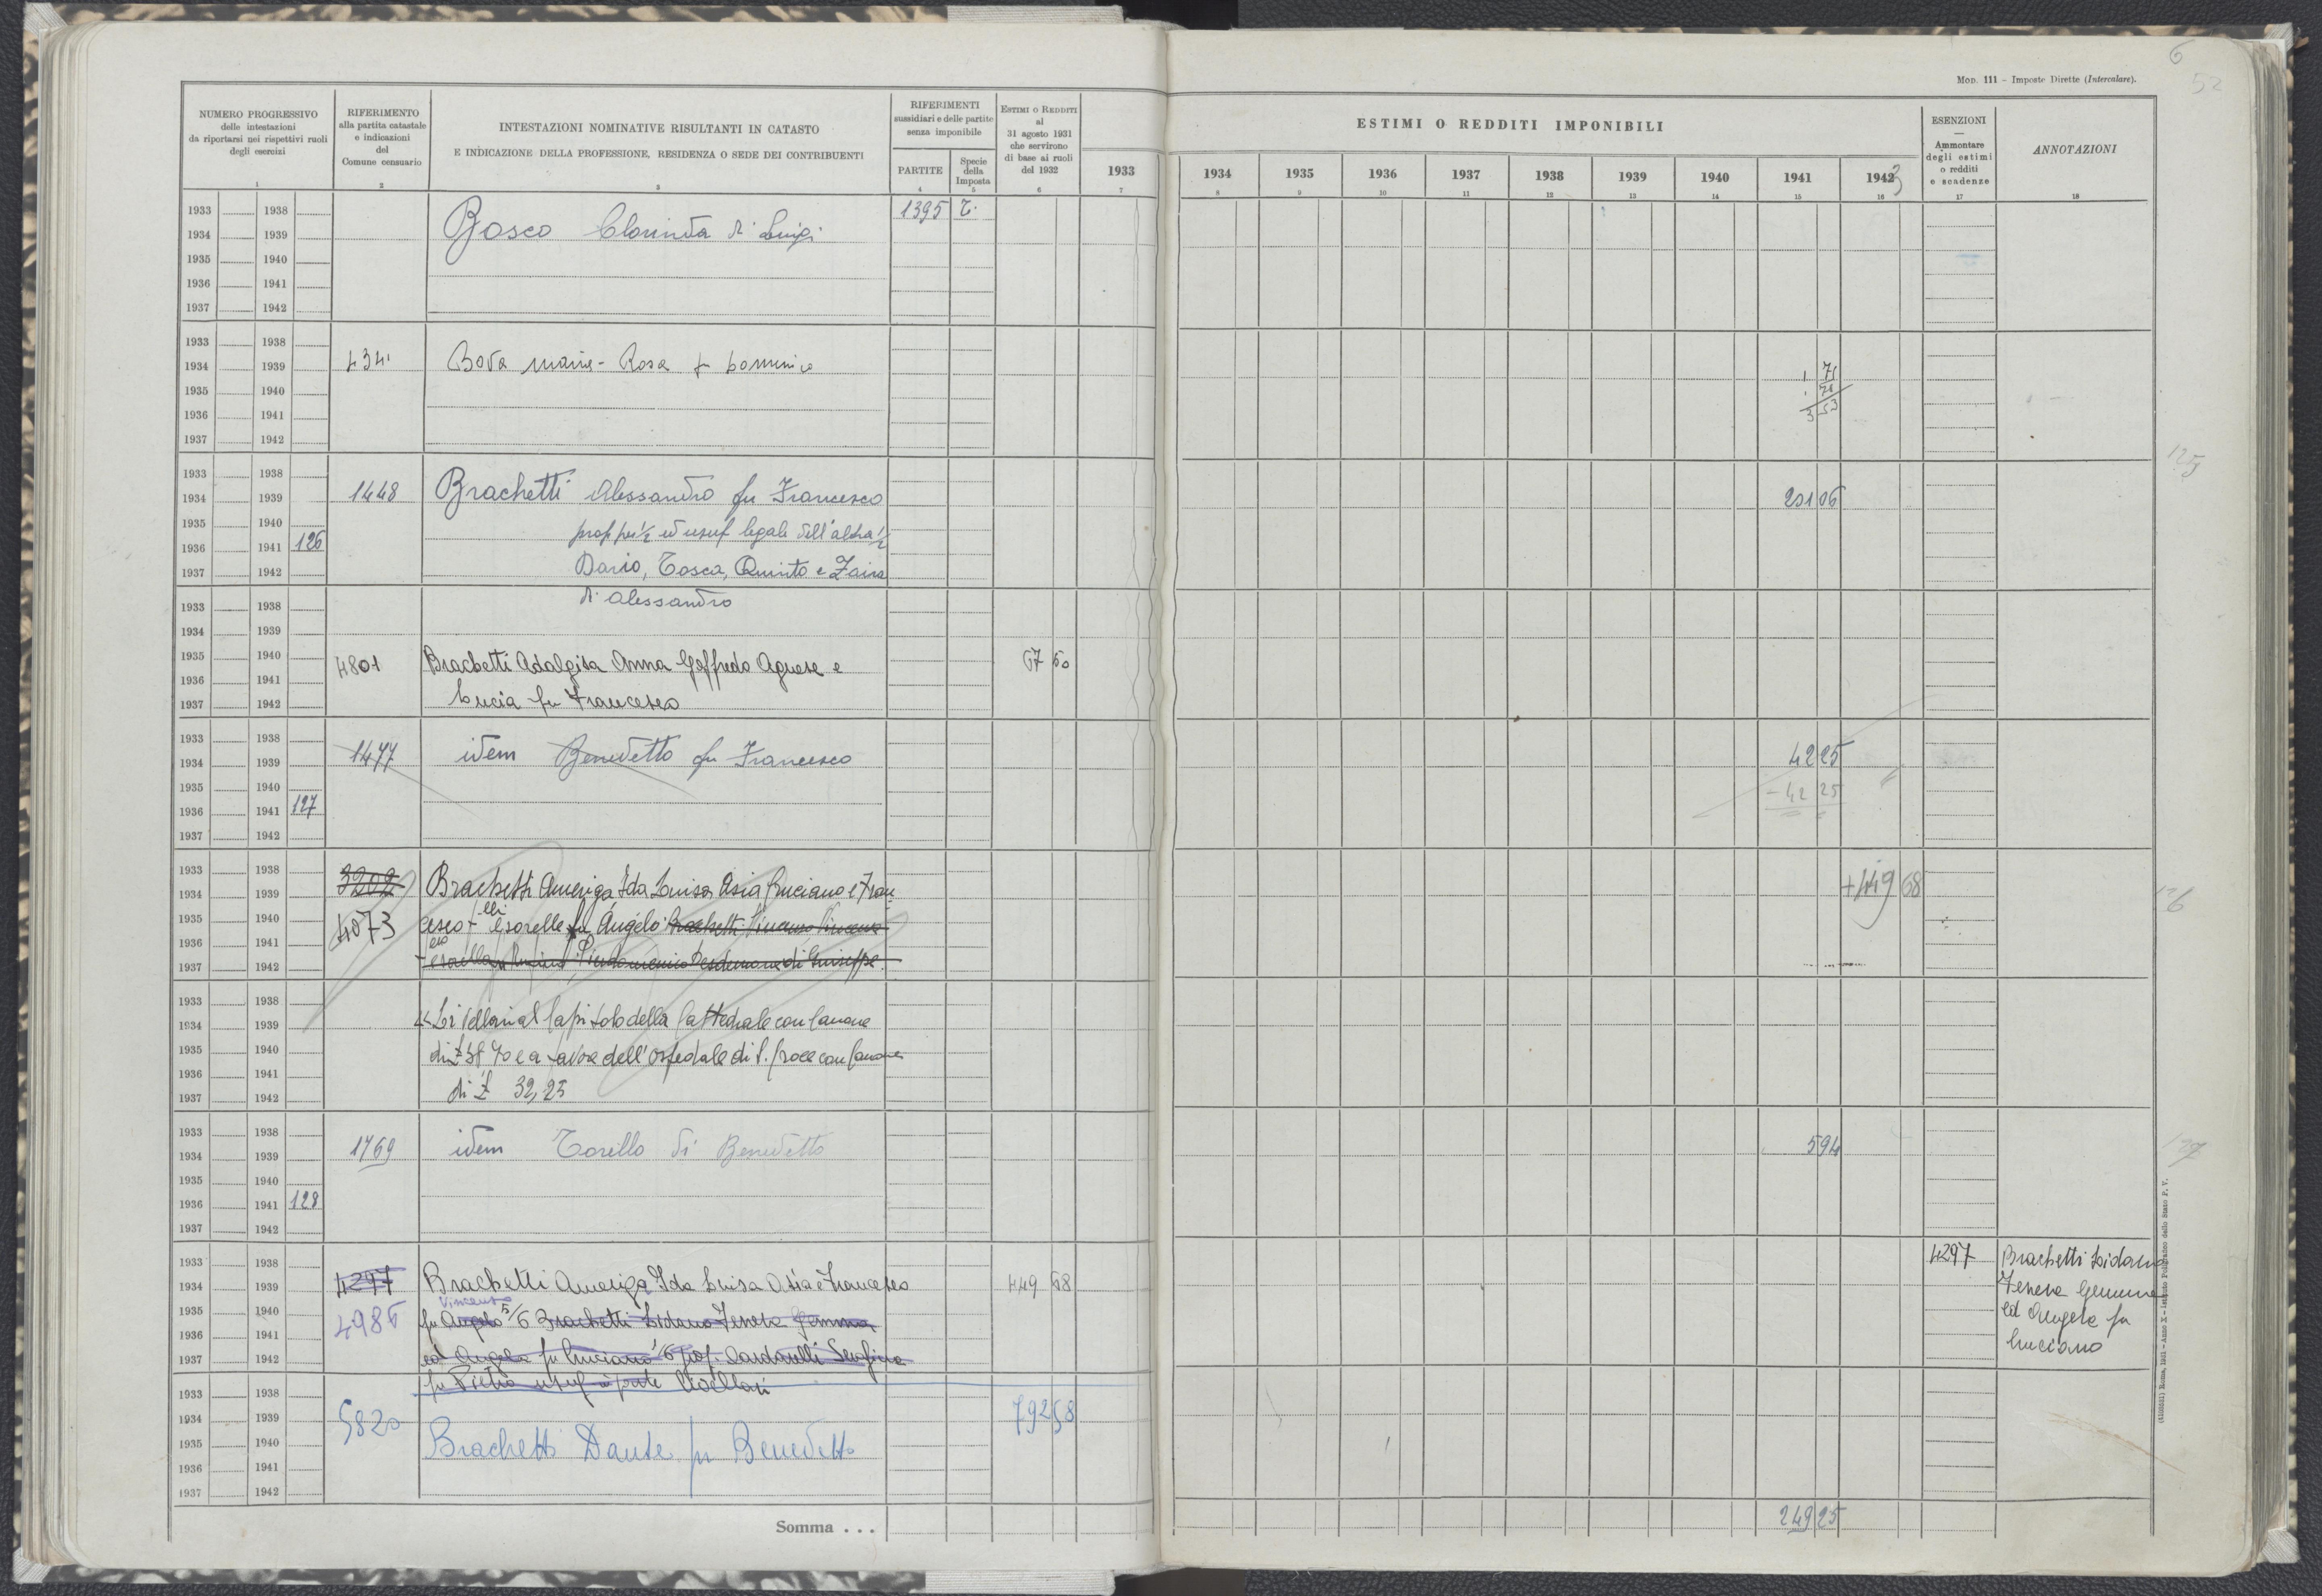 6
52
Mod. 111 - Imposte Dirette (Intercalare).
NUMERO PROGRESSIVO
delle intestazioni
da riportarsi nei rispettivi ruoli
degli esercizi
1
RIFERIMENTO
alla partita catastale
e indicazioni
del
Comune censuario
2
INTESTAZIONI NOMINATIVE RISULTANTI IN CATASTO
E INDICAZIONE DELLA PROFESSIONE, RESIDENZA O SEDE DEI CONTRIBUENTI
3
RIFERIMENTI
sussidiari e delle partite
senza imponibile
PARTITE
4
Specie
della
Imposta
5
ESTIMI O REDDITI
al
31 agosto 1931
che servirono
di base ai ruoli
del 1932
6
1933
7
ESTIMI O REDDITI IMPONIBILI
1934 1935 1936 1937 1938 1939 1940 1941 1942 3
8 9 10 11 12 13 14 15 16
ESENZIONI
Ammontare
degli estimi
o redditi
e scadenze
17
ANNOTAZIONI
18
1933 1938
1934 1939
1935 1940
1936 1941
1937 1942
Bosco Clorinda di Luigi
1395 T.
1933 1938
1934 1939
1935 1940
1936 1941
1937 1942
Bova Rosa fu
1 71
3 53
125
1933 1938
1934 1939
1935 1940
1936 1941 126
1937 1942
1448 Brachetti Alessandro fu Francesco
prop per 1/2 ed usuf legale dell'altra 1/2
Dario, Tosca, Quinto e Zaira
di Alessandro
201 06
1933 1938
1934 1939
1935 1940
1936 1941
1937 1942
4801 Brachetti Adalgisa Anna Goffredo Agnese e
Lucia fu Francesco
67 60
1933 1938
1934 1939
1935 1940
1936 1941 127
1937 1942
1477 idem Benedetto fu Francesco
42 25
- 42 25
1933 1938
1934 1939
1935 1940
1936 1941
1937 1942
3202 Brachetti Ameriga, Ida Luisa Asia Luciano e Fran
4073 cesco - lli e sorelle fu Angelo Brachetti
Desdemona di Giuseppe
+449 68
126
1933 1938
1934 1939
1935 1940
1936 1941
1937 1942
Livellari al Capitolo della Cattedrale con canone
di £ 38,70 e a favore dell'ospedale di S. Croce con canone
di £ 32,25
1933 1938
1934 1939
1935 1940
1936 1941 128
1937 1942
1769 idem Torillo di Benedetto
5 94
127
1933 1938
1934 1939
1935 1940
1936 1941
1937 1942
4297 Brachetti Ameriga Ida Luisa Asia e Francesco
4986 Vincenzo
fu Angelo 5/6 Brachetti Lidano Venere Gemma
ed Angela fu Luciano 1/6 prop. Cardarelli Serafina
fu Pietro usuf in parte livellari
449 68
4297 Brachetti Lidano
Venere Gemma
ed Angela fu
Luciano
1933 1938
1934 1939
1935 1940
1936 1941
1937 1942
5820 Brachetti Dante fu Benedetto
792 58
Somma . . .
249 25
(4103551) Roma, 1931 - Anno X - Istituto Poligrafico dello Stato P. V.